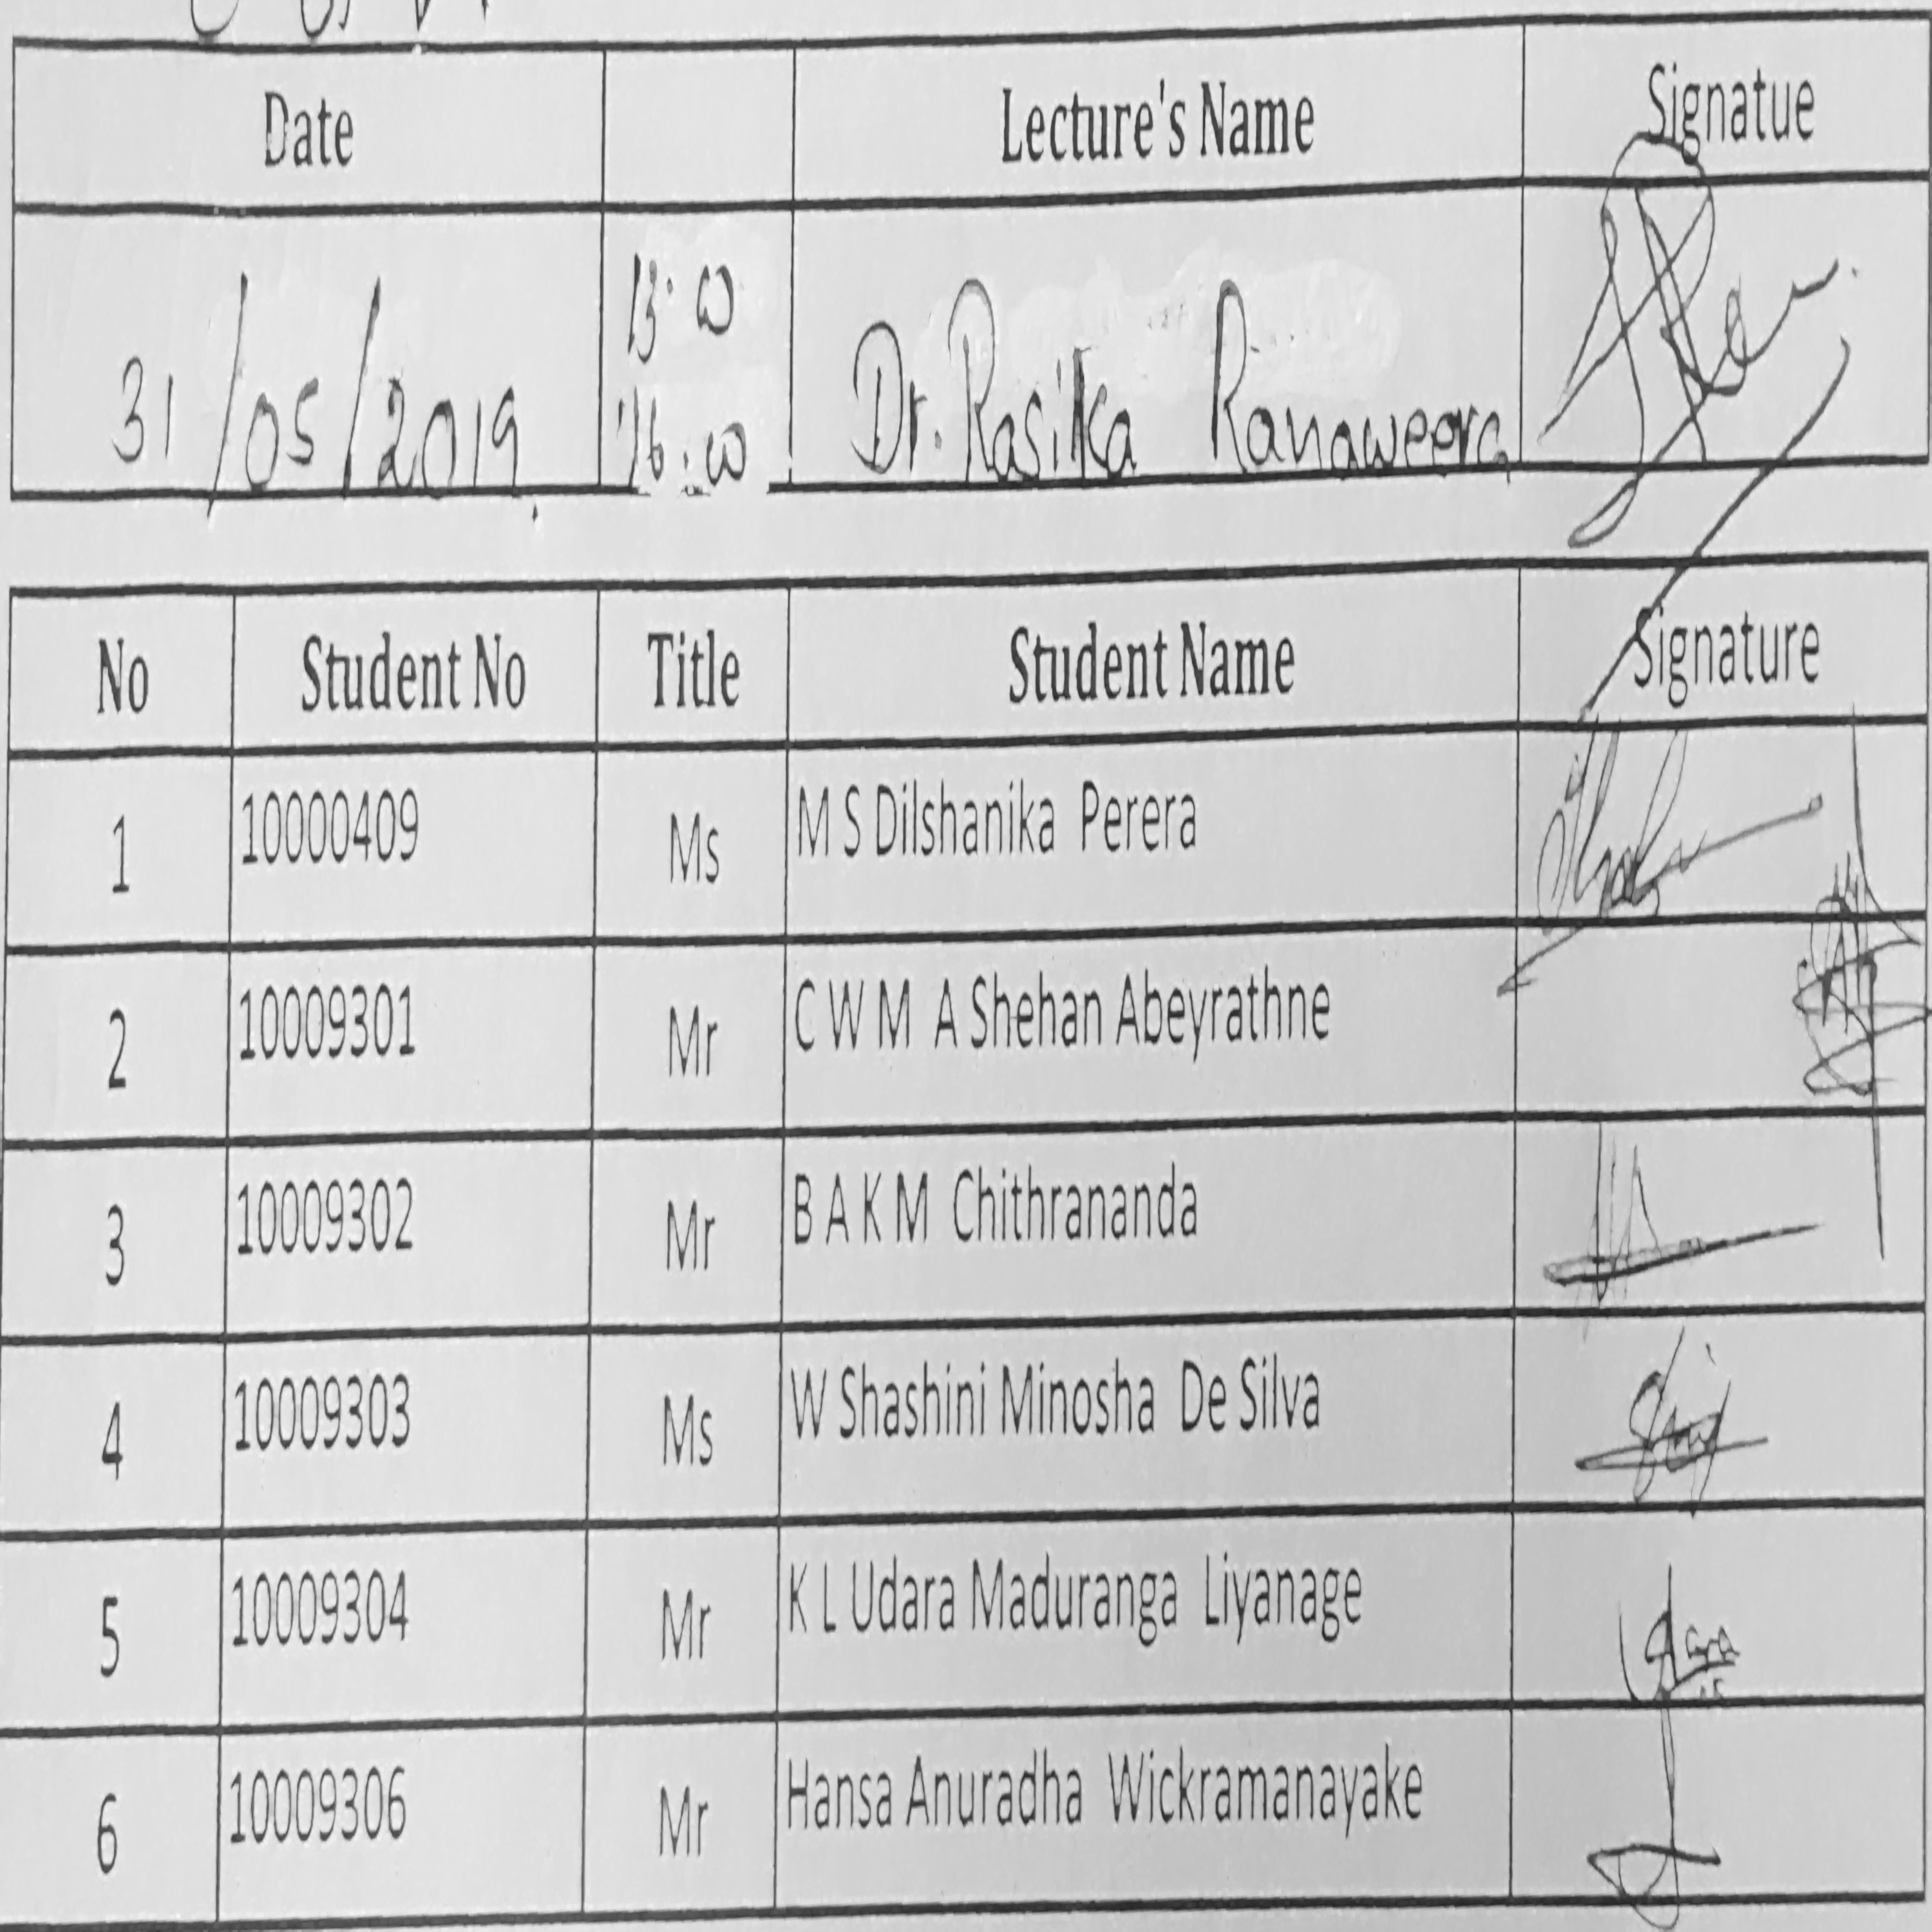 Date Lecture's Name Signatue
31/05/2019 13:00 Dr. Rasika Ranaweera
16:00
No Student No Title Student Name Signature
1 10000409 Ms M S Dilshanika Perera
2 10009301 Mr C W M A Shehan Abeyrathne
3 10009302 Mr B A K M Chithrananda
4 10009303 Ms W Shashini Minosha De Silva
5 10009304 Mr K L Udara Maduranga Liyanage
6 10009306 Mr Hansa Anuradha Wickramanayake